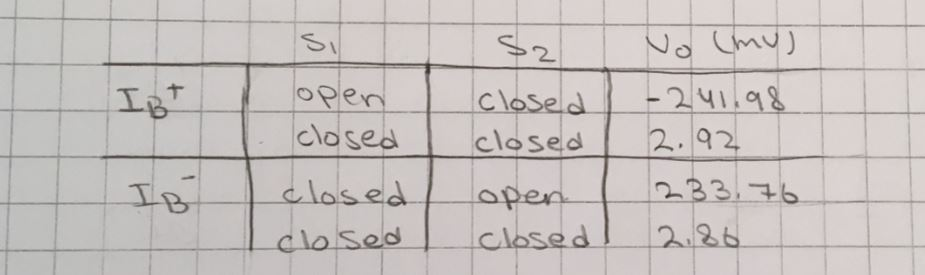 S1 S2 Vo (mV)
IB+ open closed -241.98
closed closed 2.92
IB- closed open 233.76
closed closed 2.86